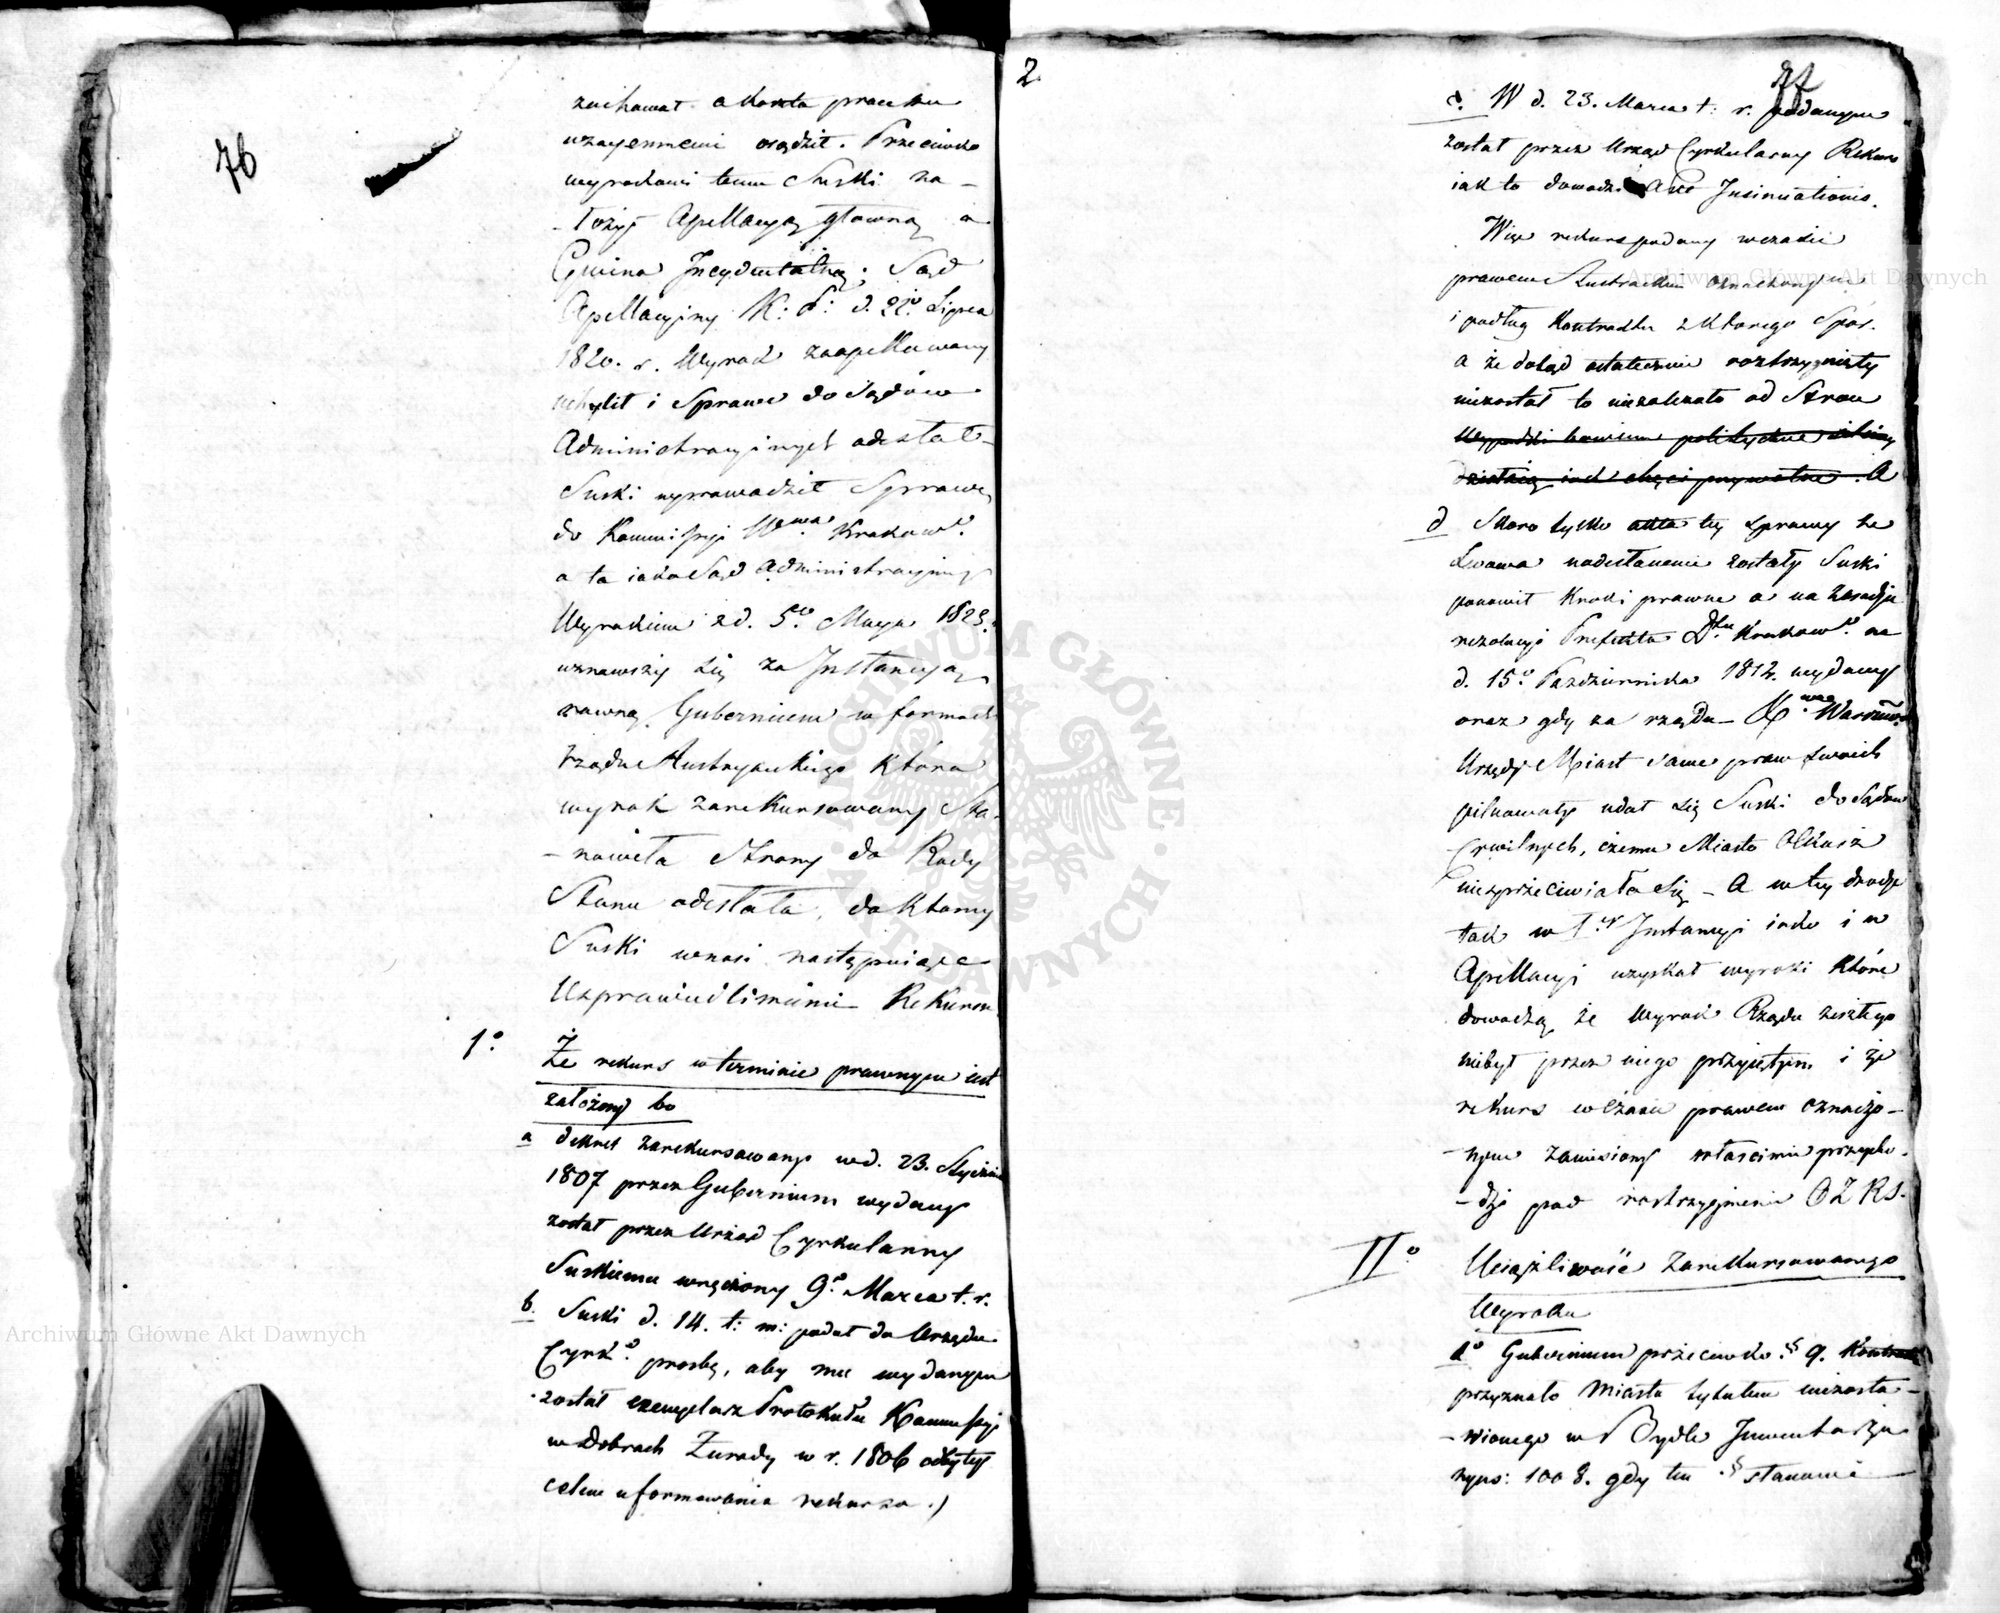 76
zachował a koszta processu
wzajemnemi osądził. Przeciwko
wyrokowi temu Suski za-
-łożył Apellacyą główną a
Gmina Incydentalną; Sąd
Apellacyjny K: P: d. 21go Lipca
1820. r. Wyrok zaapellowany
uchylił i Sprawę do Sądów
Administracyjnych odesłał-
Suski wprowadził Sprawę
do Kommissyi Wwa Krakowo
a ta iako Sąd Administracyjny
Wyrokiem z d. 5go Maja 1823.
uznawszy się za Instancyą
równą Gubernium w formach
rządu Austryackiego która
wyrok zarekursowany Sta-
-nowiła Strony do Rady
Stanu odesłała, do którey
Suski wnosi następuiące
Usprawiedliwienie Rekursu
1o Że rekurs w terminie prawnym iest
założony bo
a dekret zarekursowany w d. 23. Stycznia
1807 przez Gubernium wydany
został przez Urząd Cyrkularny
Suskiemu wręczony 9o Marca t. r.
b. Suski d. 14. t: m: podał do Urzędu
Cyrko prosbę, aby mu wydanym
został exemplarz Protokułu Kommissyi
w Dobrach Żurady w r. 1806 odbytey
celem uformowania rekursu.)
2.
77
c. W d. 23. Marca t: r. podanym
został przez Urząd Cyrkularny Rekurs
iak to dowodzi Act Insinuationis.
Więc rekurs podany w czasie
prawem Austriackim oznaczonym
i podług Kontraktu z którego Spór.
a że dotąd ostatecznie rozstrzygnięty
niezostał to niezależało od Stron
Wypadki bowiem polityczne silniey
działaią iak chęci prywatne. A
d Skoro tylko akta tey sprawy ze
Lwowa nadesłanemi zostały Suski
ponowił Kroki prawne a na zasadzie
rezolucyi Prefekta Dtu Krakowo na
d. 15o Października 1812. wydaney
oraz gdy za rządu Xwa Warszaw:
Urzędy Miast same praw swoich
pilnowały udał się Suski do Sądów
Cywilnych, czemu Miasto Olkusz
niesprzeciwiało się - A w tey drodze
tak w 1ey Instancyi iako i w
Apellacyi uzyskał wyroki które
dowodzą że Wyrok Rządu zeszłego
niebył przez niego przyiętym i że
rekurs w czasie prawem oznaczo-
-nym zaniesiony własciwie przycho-
-dzi pod rostrzygnienie O Z R S.
IIo Uciążliwość Zarekursowanego
Wyroku
1o Gubernium przeciwko § 9. Kontraktu
przyznało Miastu tytułem niezosta-
-wionego w Bydle Inwentarza
ryns: 1008. gdy ten § stanowi
Archiwum Główne Akt Dawnych
Archiwum Główne Akt Dawnych
ARCHIWUM GŁÓWNE · AKT DAWNYCH ·